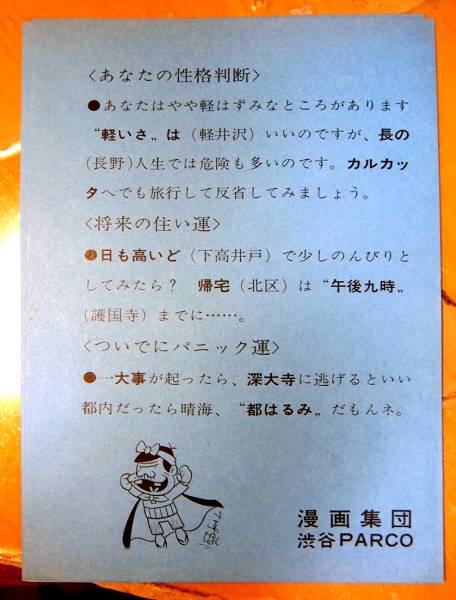 〈あなたの性格判断〉
●あなたはやや軽はずみなところがあります
〝軽いさ〟は（軽井沢）いいのですが、長の
（長野）人生では危険も多いのです。カルカッ
タへでも旅行して反省してみましょう。
〈将来の住い運〉
●日も高いど（下高井戸）で少しのんびりと
してみたら？　帰宅（北区）は〝午後九時〟
（護国寺）までに……。
〈ついでにパニック運〉
●一大事が起ったら、深大寺に逃げるといい
都内だったら晴海、〝都はるみ〟だもんネ。
漫画集団
渋谷PARCO